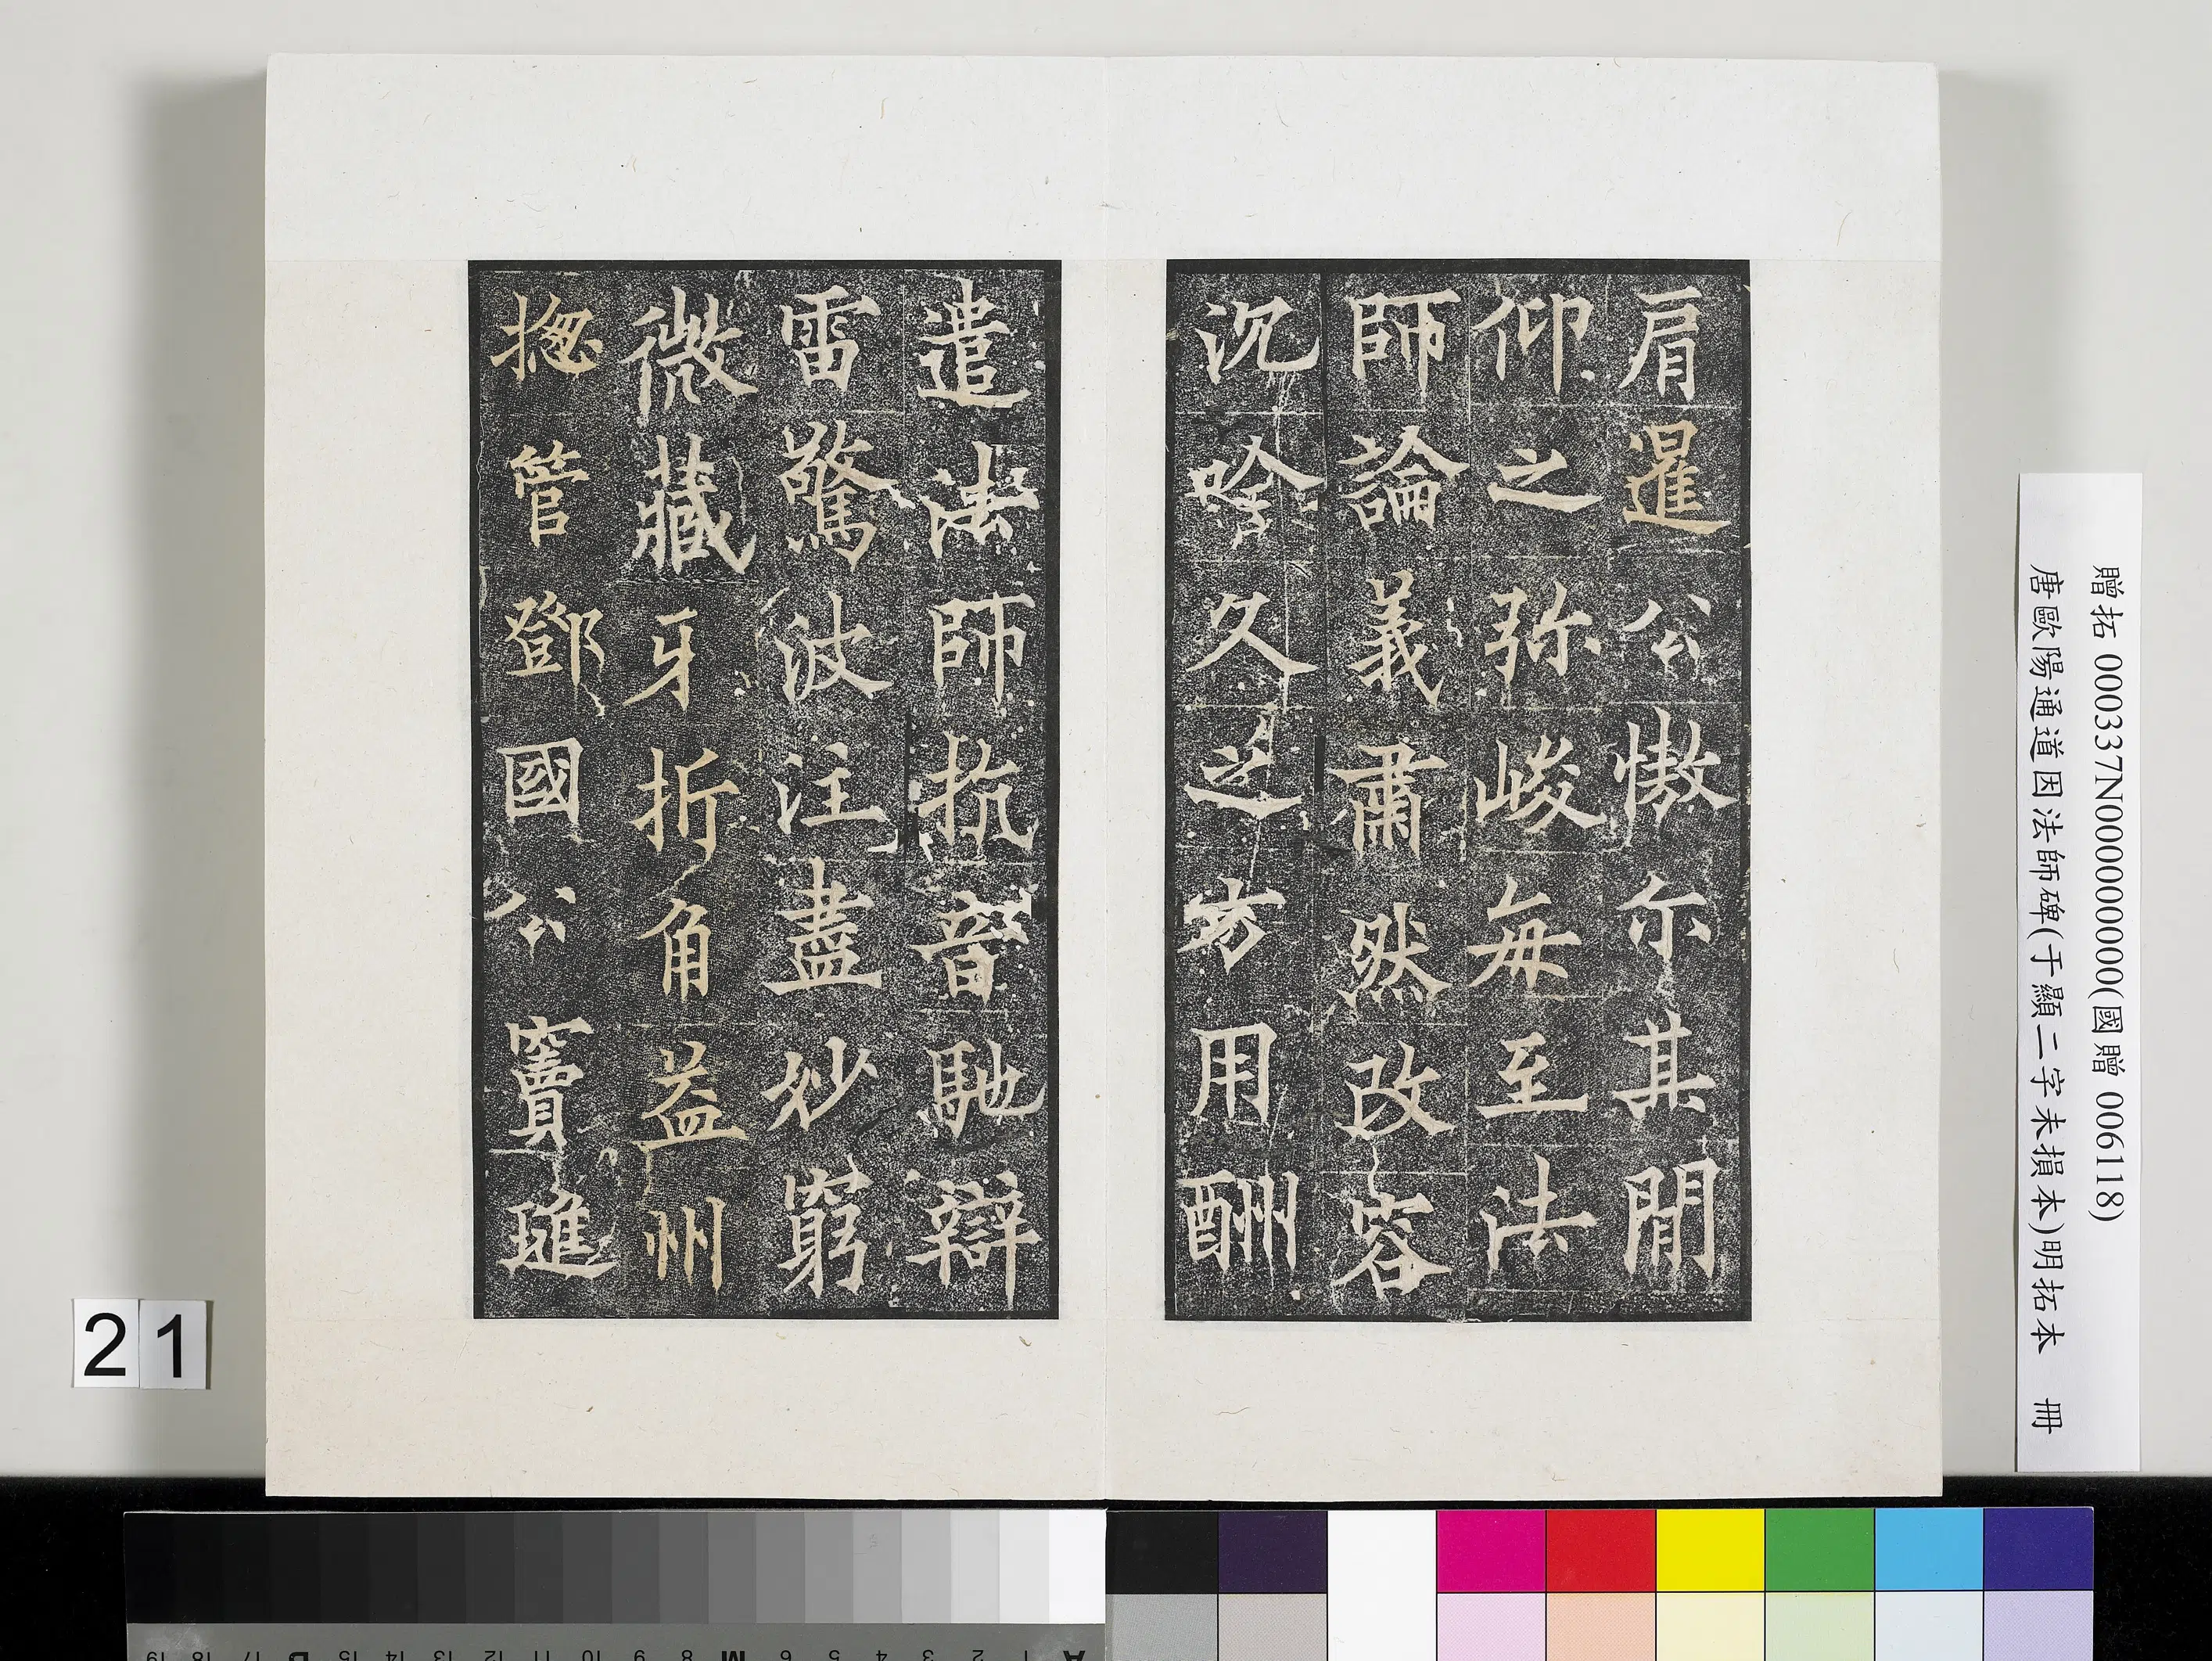 肩暹公慠尒其閒
仰之弥峻每至法
師論義肅然改容
沉吟久之方用酬
遣法師抗音馳辯
雷驚波注盡妙窮
微藏牙折角益州
揔管鄧國公竇璡
贈拓 000337N000000000(國贈 006118)
唐歐陽通道因法師碑(于顯二字未損本)明拓本 冊
21
A 1 2 3 4 5 6 M 8 9 10 11 12 13 14 15 B 17 18 19